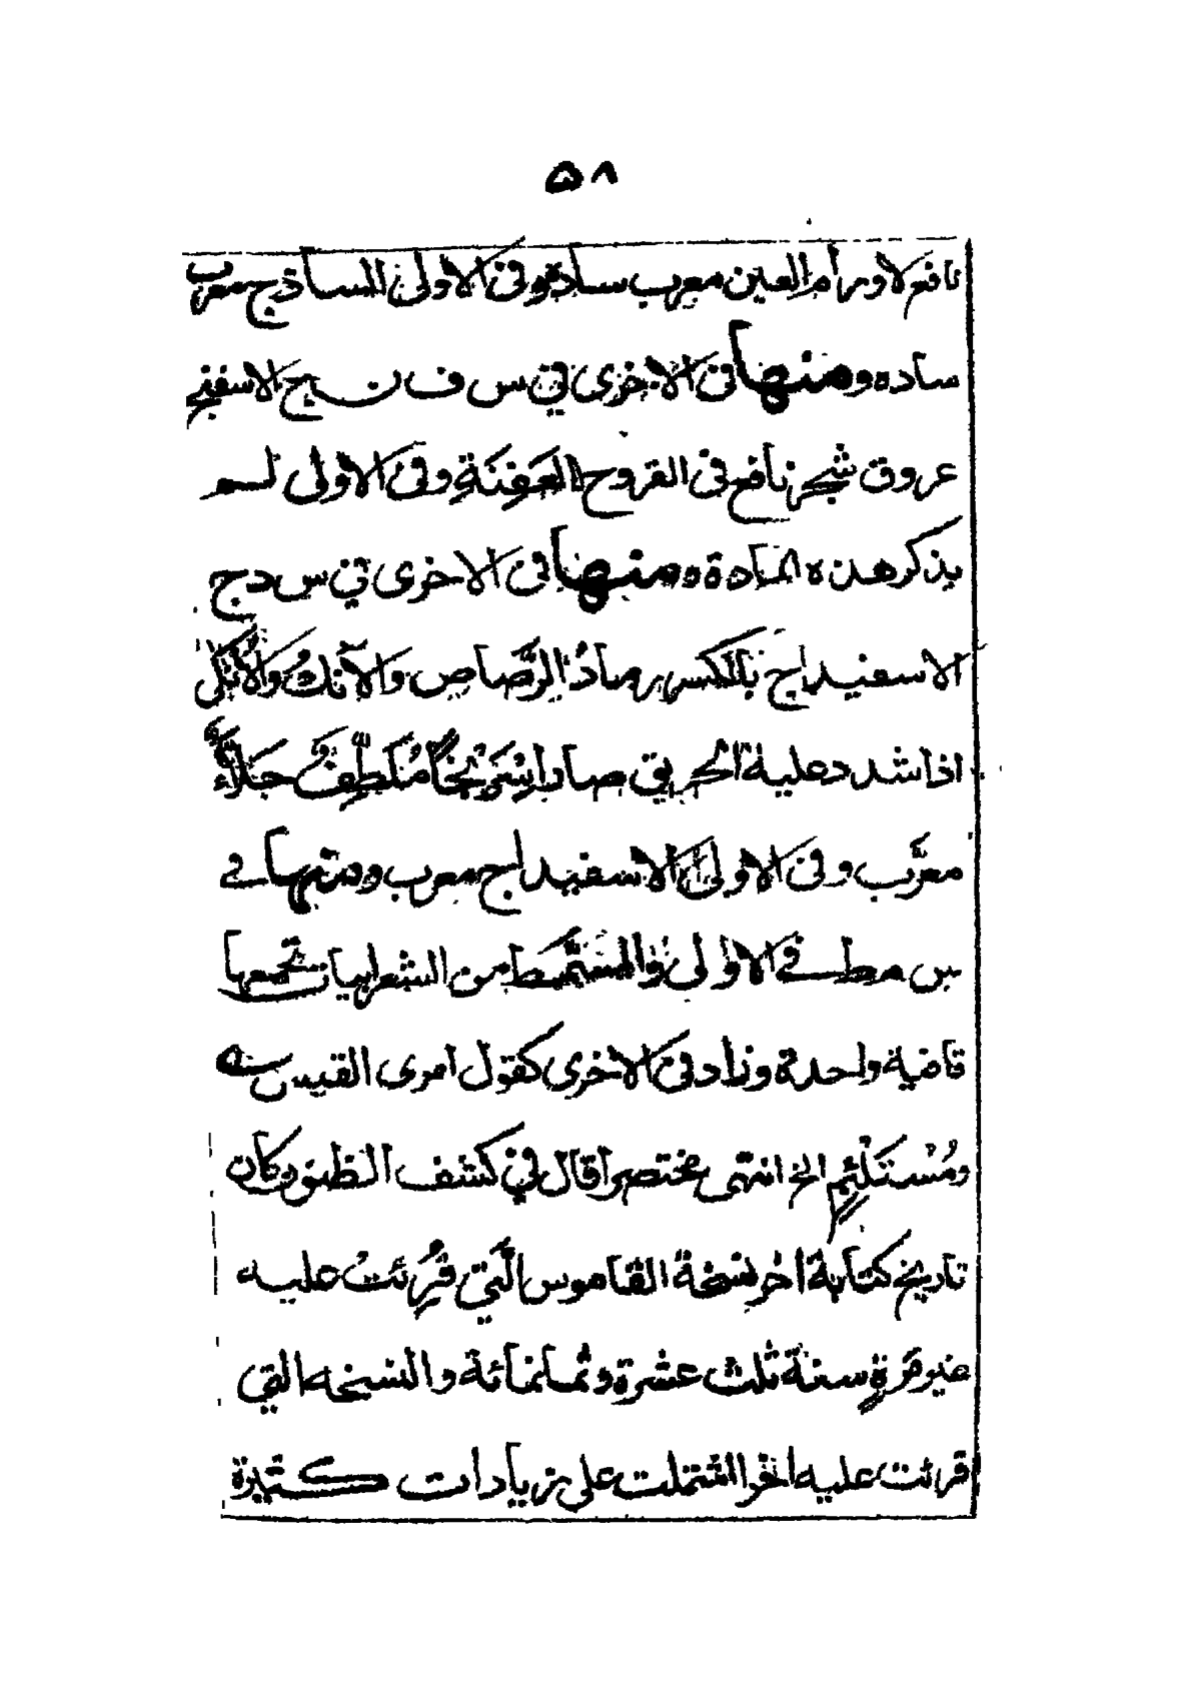 ۵۸
نافع لاورام العين معرب سادة وفى الاولى الساذج معرب
ساده ومنها فى الاخرى فى س ف ن ج الاسفنج
عروق شجر نافع فى القروح العَفِنَةِ وفى الاولى لم
يذكر هذه المادة ومنها فى الاخرى فى س د ج
الاسفيداج بالكسر رمادُ الرَّصاص والآنك والآنك
اذا شدد عليه الحريق صار اسرنجا مُلطِّف جلاءٌ
معرَّب وفى الاولى الاسفيداج معرب ومنها فے
س مط فے الاولى والمسمَّط من الشعر ابيات تجمعها
قافية واحدة وزاد فى الاخرى كقول امرى القيس سنه
ومُسْتَلْئِمٍ الخ انتهى مختصرا قال فى كشف الظنون وكان
تاريخ كتابة اخر نسخة القاموس الَّتي قُرِئتْ عليه
غيرمَرةٍ سنة ثلث عشرة وثمانمائة والنسخه التى
قرائت عليه اخرا اشتملت على زيادات كثيرة